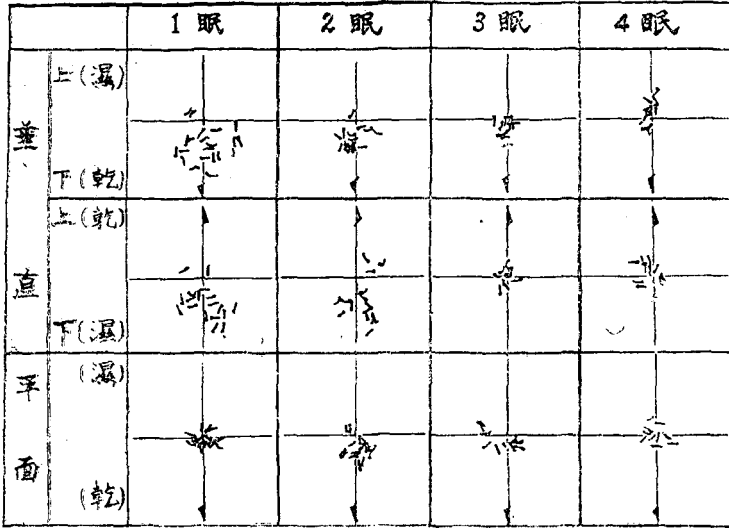 1 眠 2 眠 3 眠 4 眠
垂直
上(濕)
下(乾)
上(乾)
下(濕)
平面
(濕)
(乾)